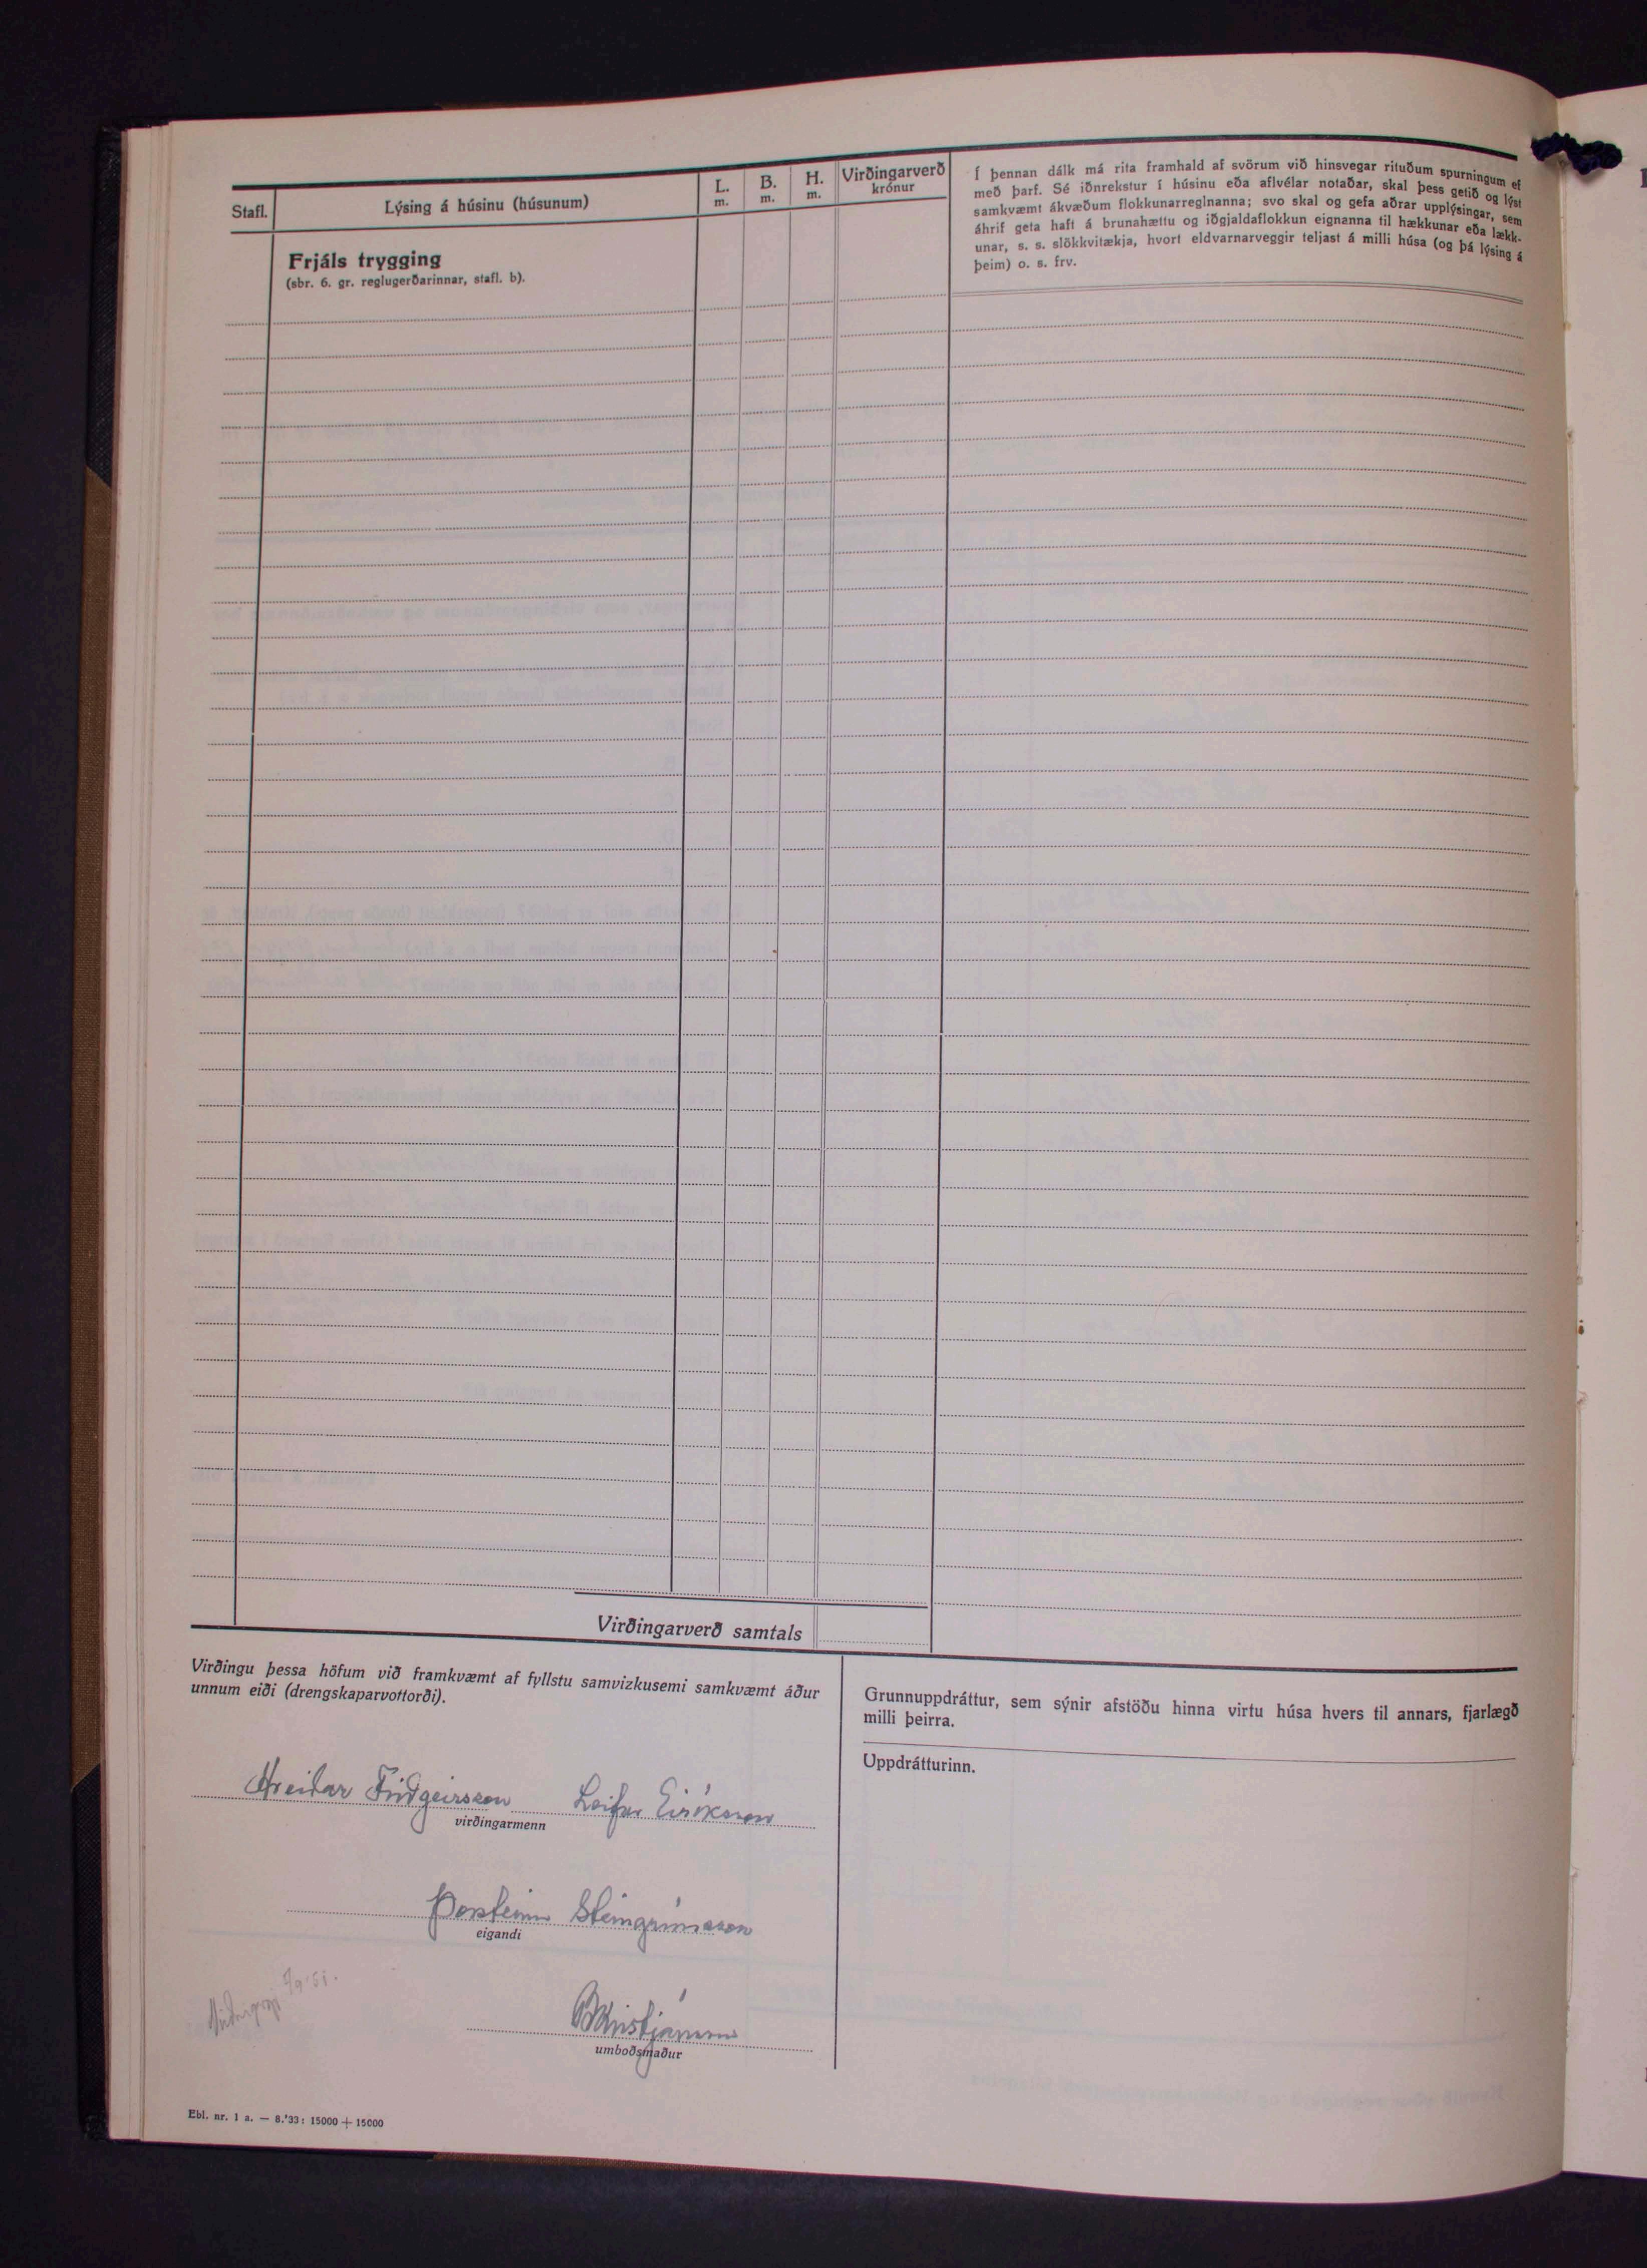 Stafl.
Lýsing á húsinu (húsunum)
L.
m.
B.
m.
H.
m.
Virðingarverð
krónur
Í þennan dálk má rita framhald af svörum við hinsvegar rituðum spurningum ef
með þarf. Sé iðnrekstur í húsinu eða aflvélar notaðar, skal þess getið og lýst
samkvæmt ákvæðum flokkunarreglnanna; svo skal og gefa aðrar upplýsingar, sem
áhrif geta haft á brunahættu og iðgjaldaflokkun eignanna til hækkunar eða lækk-
unar, s. s. slökkvitækja, hvort eldvarnarveggir teljast á milli húsa (og þá lýsing á
þeim) o. s. frv.
Frjáls trygging
(sbr. 6. gr. reglugerðarinnar, stafl. b).
Virðingarverð samtals
Virðingu þessa höfum við framkvæmt af fyllstu samvizkusemi samkvæmt áður
unnum eiði (drengskaparvottorði).
Hreiðar Friðgeirsson Leifur Eiríksson
virðingarmenn
Þorsteinn Steingrímsson
eigandi
Kristjánsson
umboðsmaður
Grunnuppdráttur, sem sýnir afstöðu hinna virtu húsa hvers til annars, fjarlægð
milli þeirra.
Uppdrátturinn.
Ebl. nr. 1 a. — 8.'33: 15000 + 15000